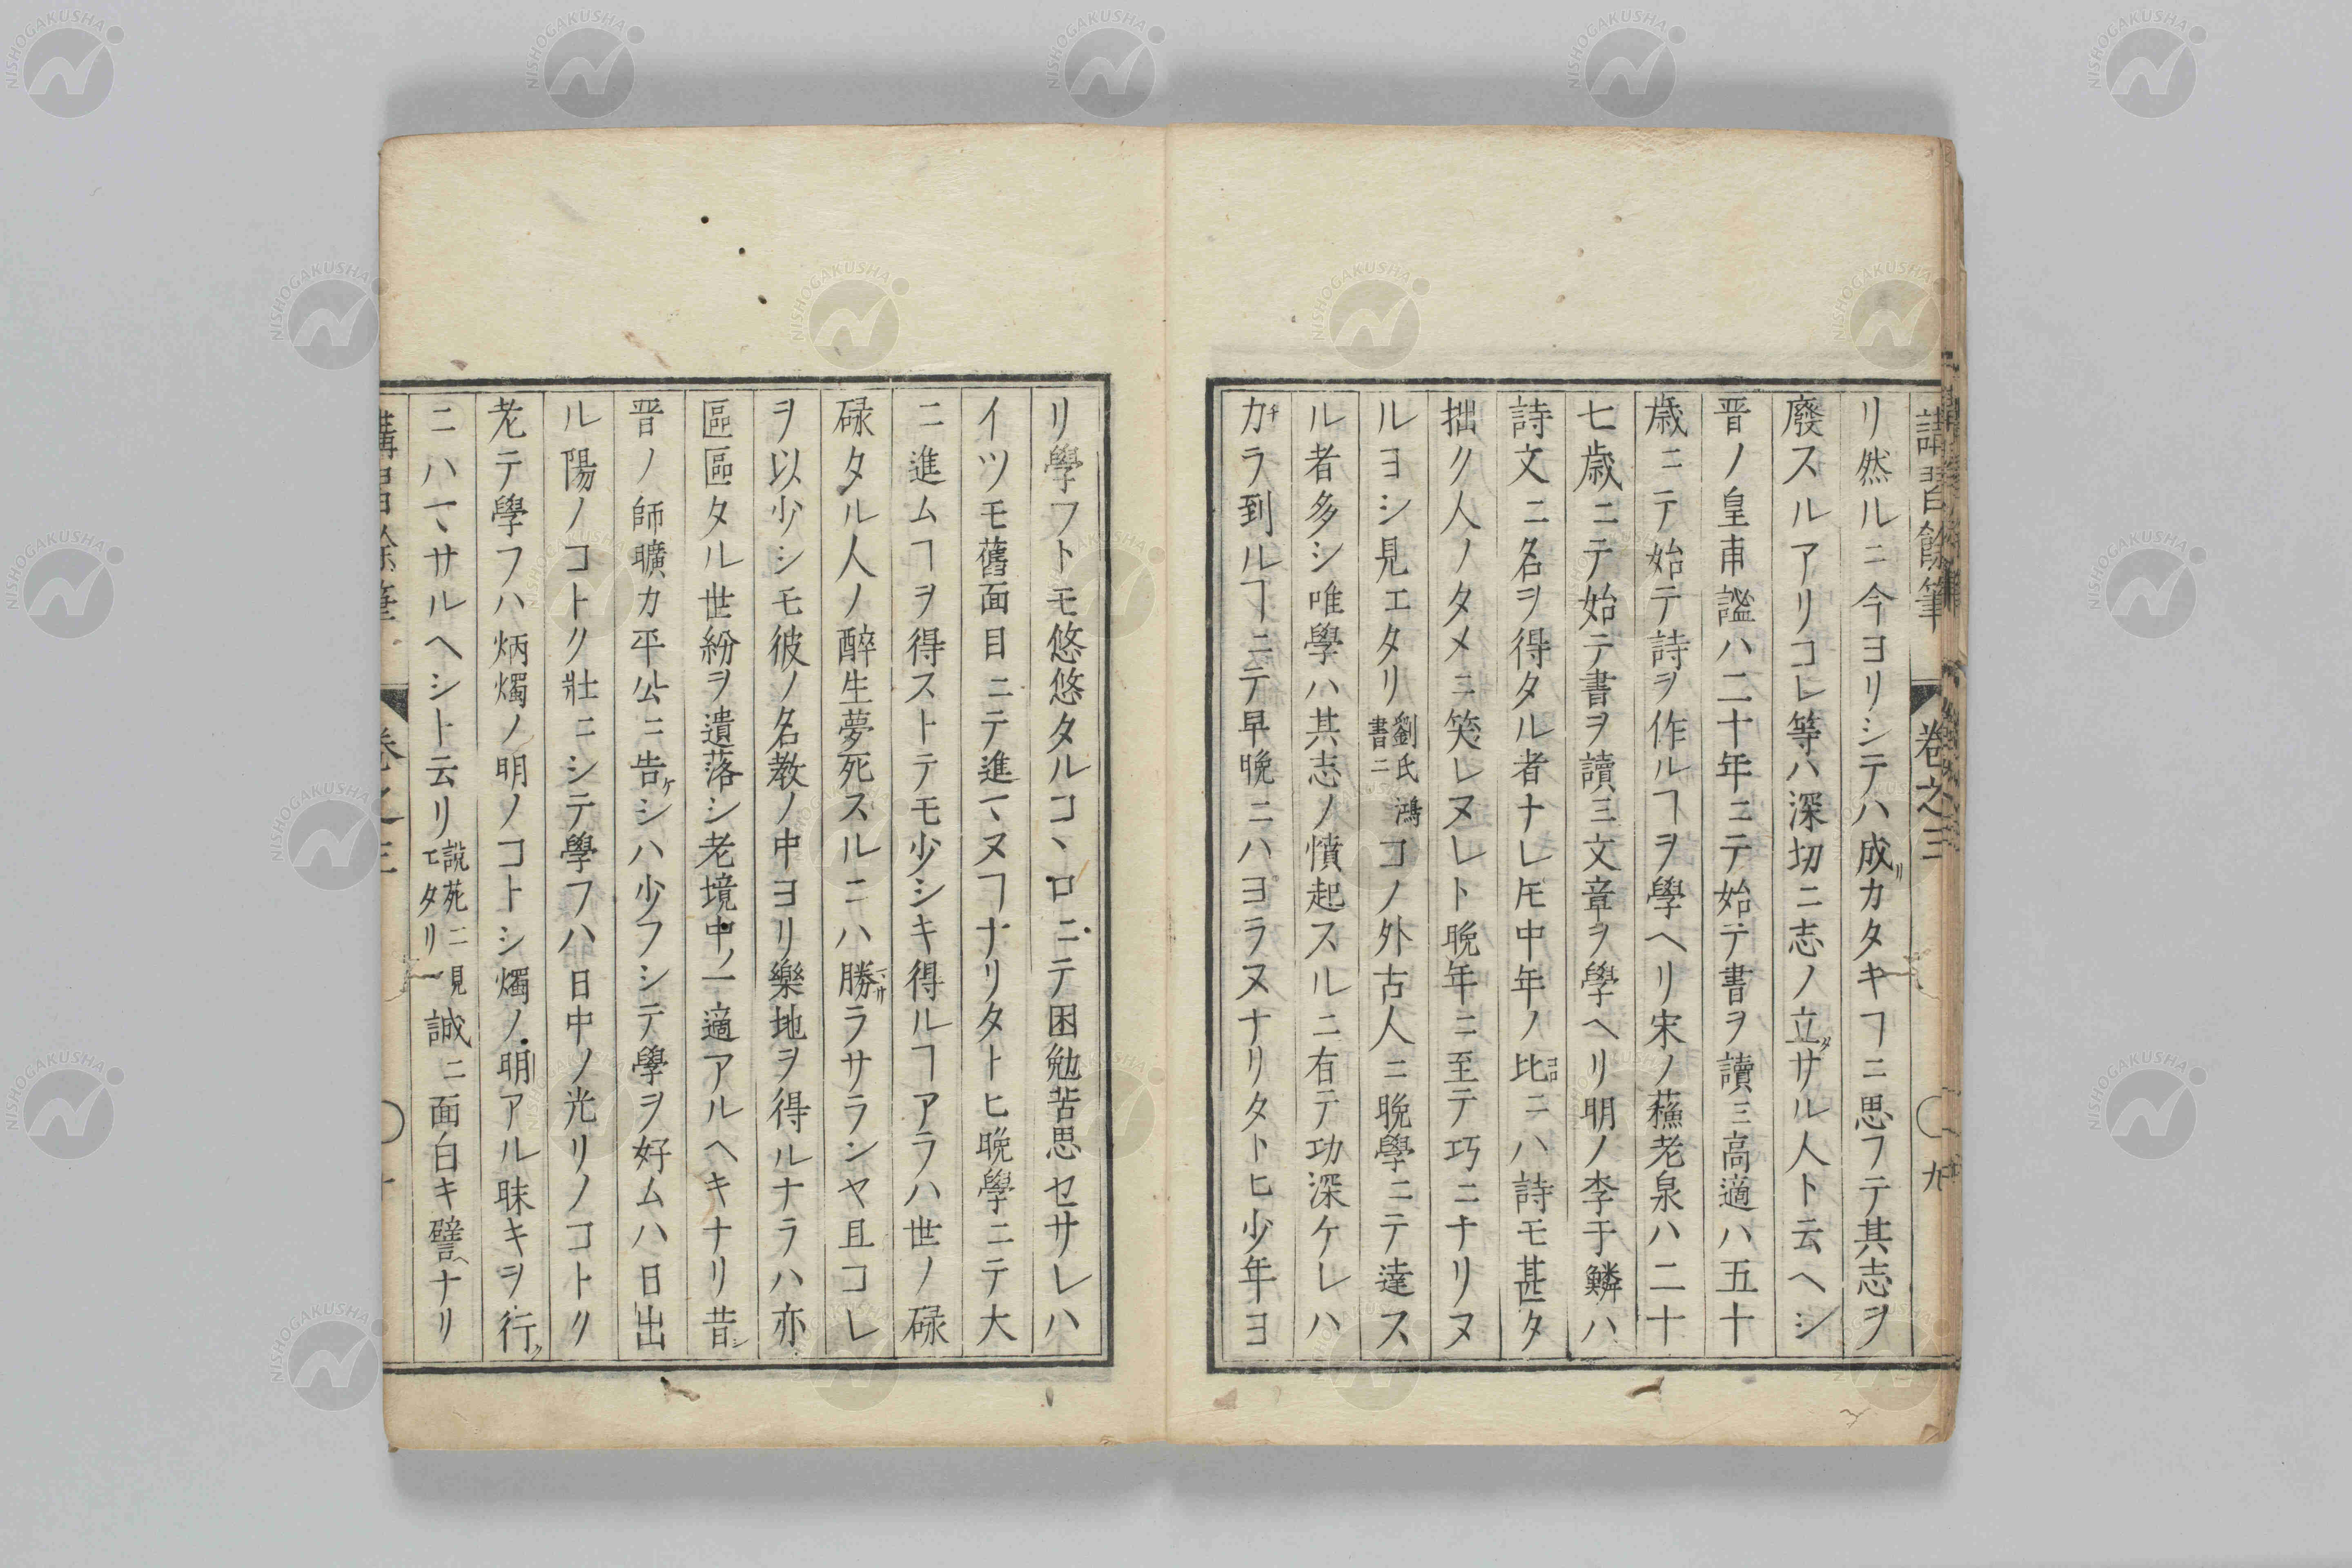 講習餘筆 卷之三 九
リ然ルニ今ヨリシテハ成カタキヿニ思フテ其志ヲ
廢スルアリコレ等ハ深切ニ志ノ立サル人ト云ヘシ
晋ノ皇甫謐ハ二十年ニテ始テ書ヲ讀ミ高適ハ五十
歳ニテ始テ詩ヲ作ルヿヲ學ヘリ宋ノ蘓老泉ハ二十
七歳ニテ始テ書ヲ讀ミ文章ヲ學ヘリ明ノ李于鱗ハ
詩文ニ名ヲ得タル者ナレ𪜈中年ノ比ニハ詩モ甚タ
拙ク人ノタメニ笑レヌレト晩年ニ至テ巧ニナリヌ
ルヨシ見エタリ劉氏鴻書ニコノ外古人ニ晩學ニテ達ス
ル者多シ唯學ハ其志ノ憤起スルニ有テ功深ケレハ
カラ到ルヿニテ早晩ニハヨラヌナリタトヒ少年ヨ
リ學フトモ悠悠タルコヽロニテ困勉苦思セサレハ
イツモ舊面目ニテ進マヌヿナリタトヒ晩學ニテ大
ニ進ムヿヲ得ストテモ少シキ得ルヿアラハ世ノ碌
碌タル人ノ醉生夢死スルニハ勝ラサランヤ且コレ
ヲ以少シモ彼ノ名教ノ中ヨリ樂地ヲ得ルナラハ亦
區區タル世紛ヲ遺落シ老境中ノ一適アルヘキナリ昔シ
晋ノ師曠カ平公ニ告ケシハ少フシテ學ヲ好ムハ日出
ル陽ノコトク壯ニシテ學フハ日中ノ光リノコトク
老テ學フハ炳燭ノ明ノコトシ燭ノ明アル昧キヲ行ク
ニハマサルヘシト云リ説苑ニ見エタリ誠ニ面白キ譬ヘナリ
講習餘筆 卷之三